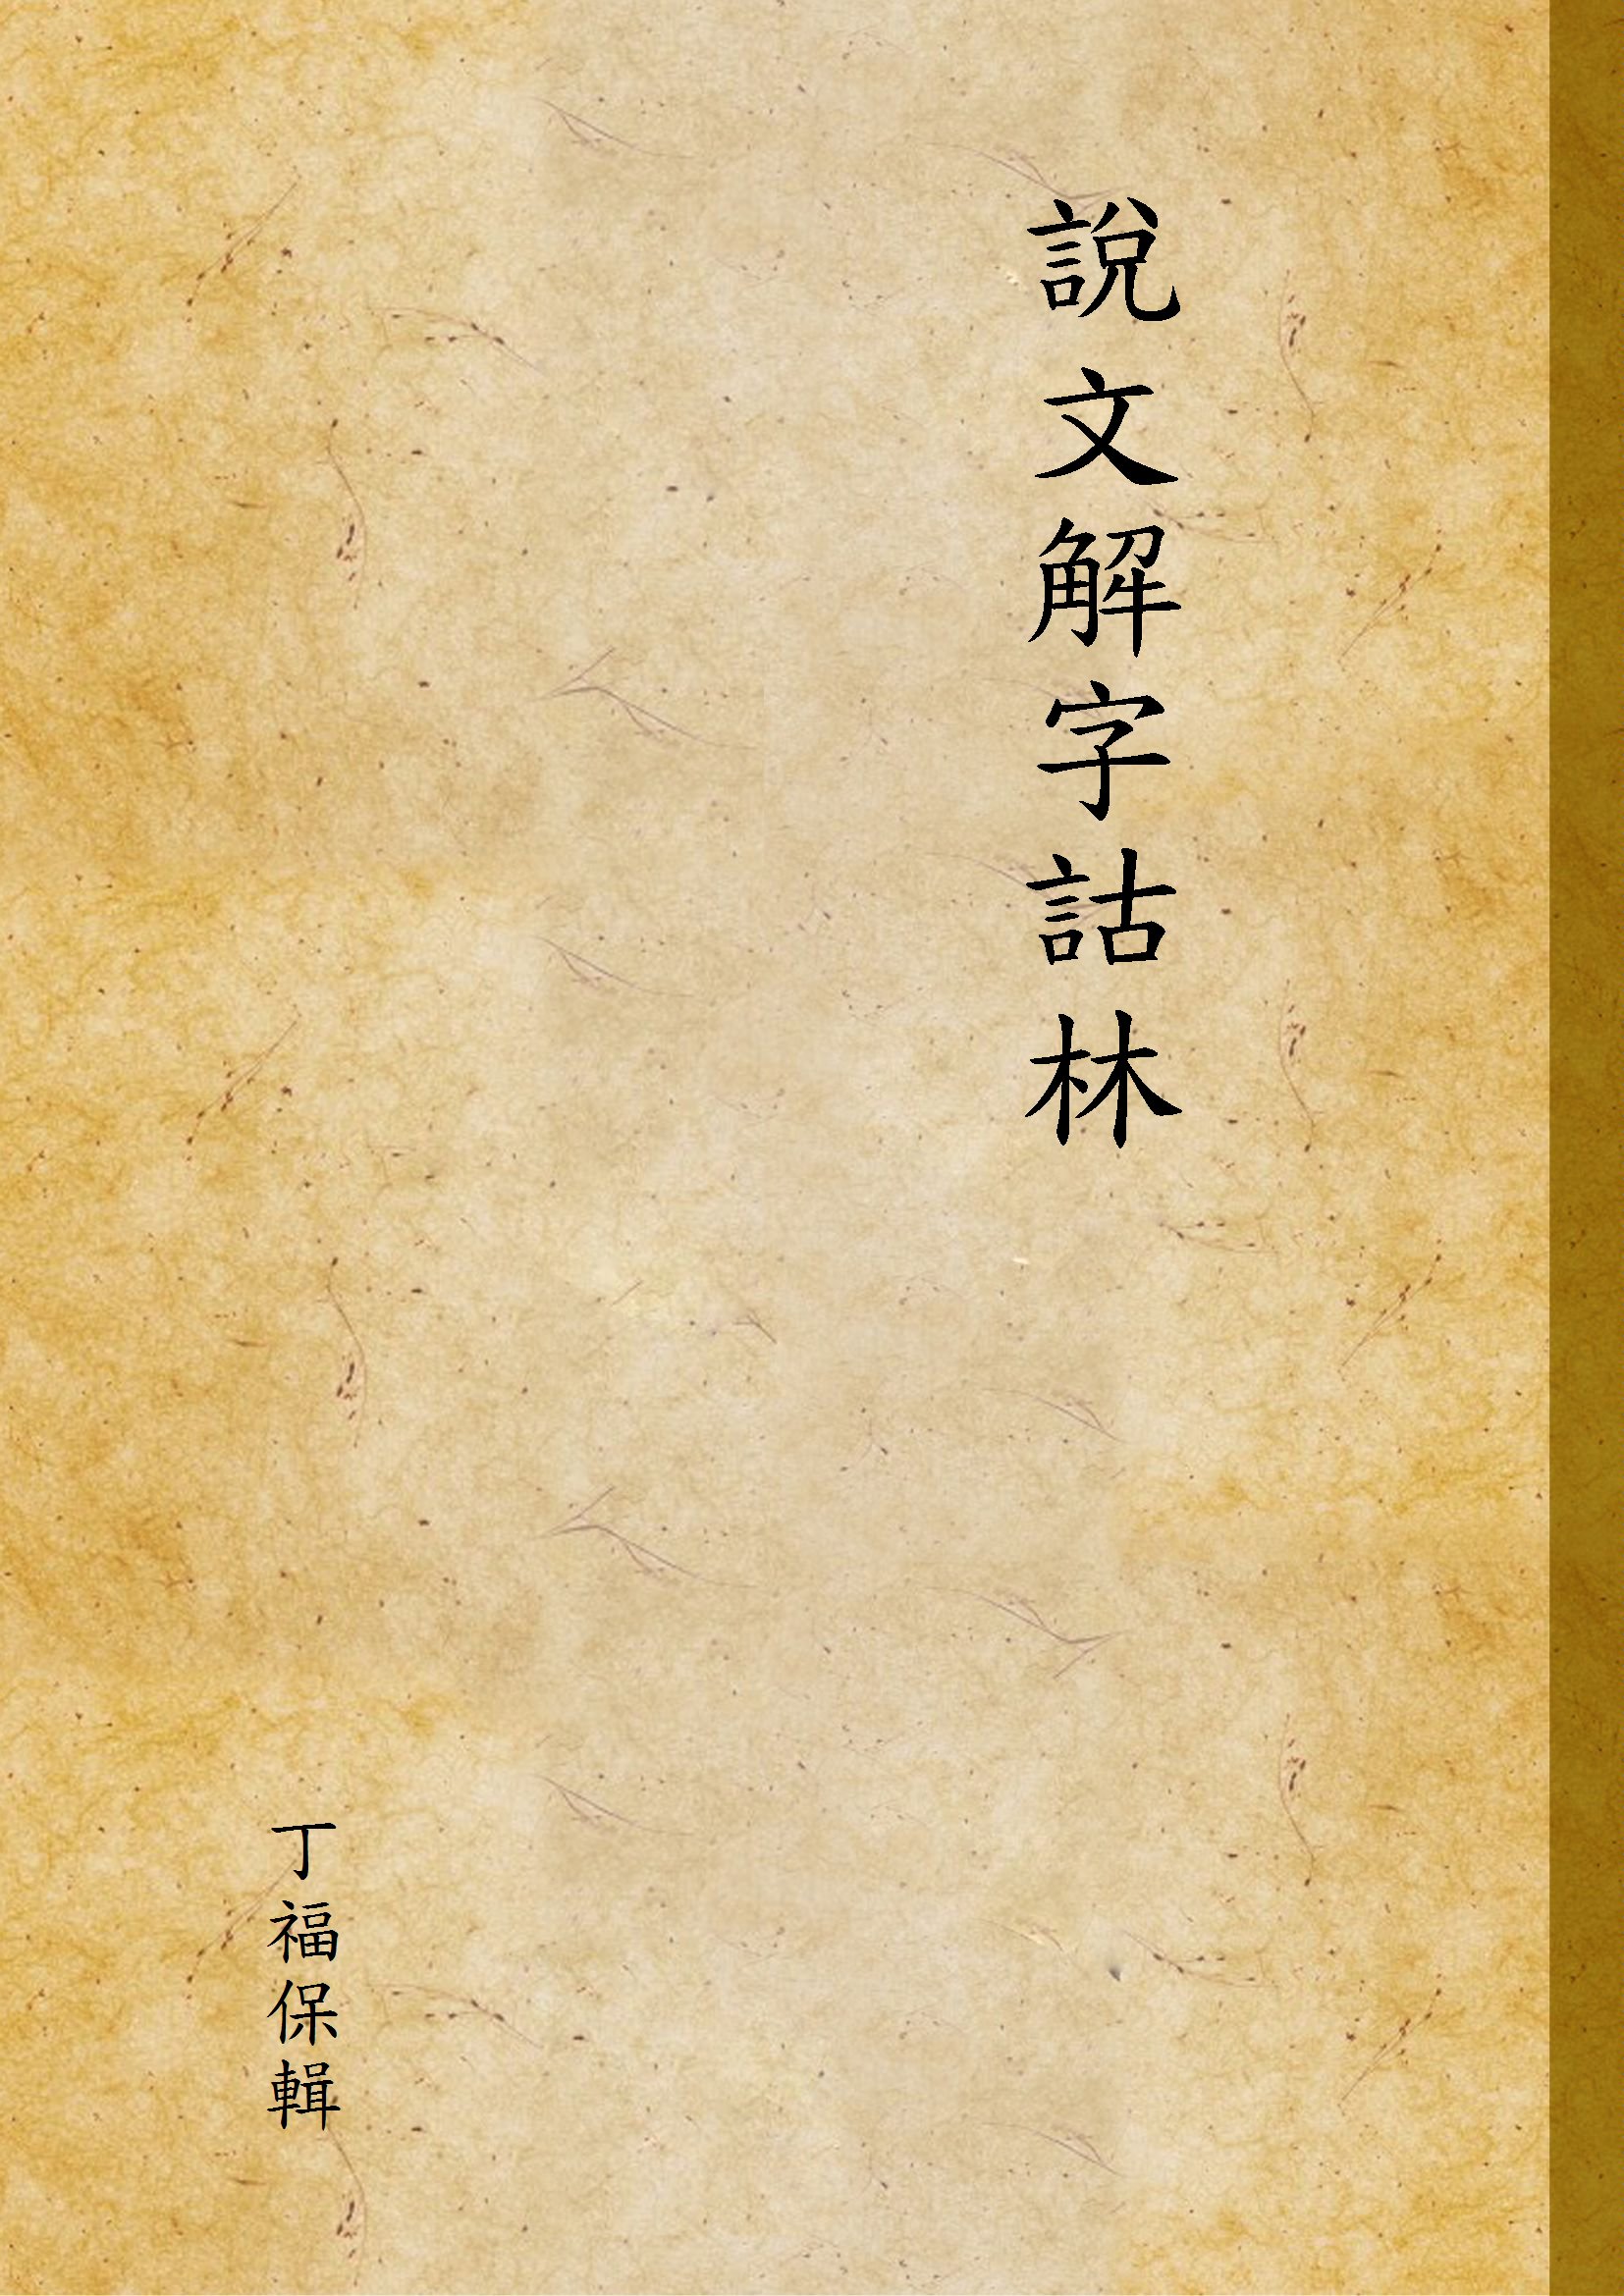 說文解字詁林
丁福保輯